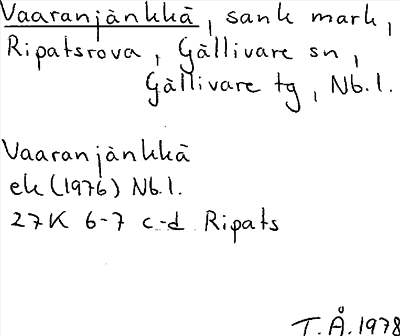 Vaaranjänkkä, sank mark,
Ripatsrova, Gällivare sn,
Gällivare tg, Nb.l.
Vaaranjänkkä
ek (1976) Nb.l.
27K 6-7 c-d Ripats
T.Å.1978